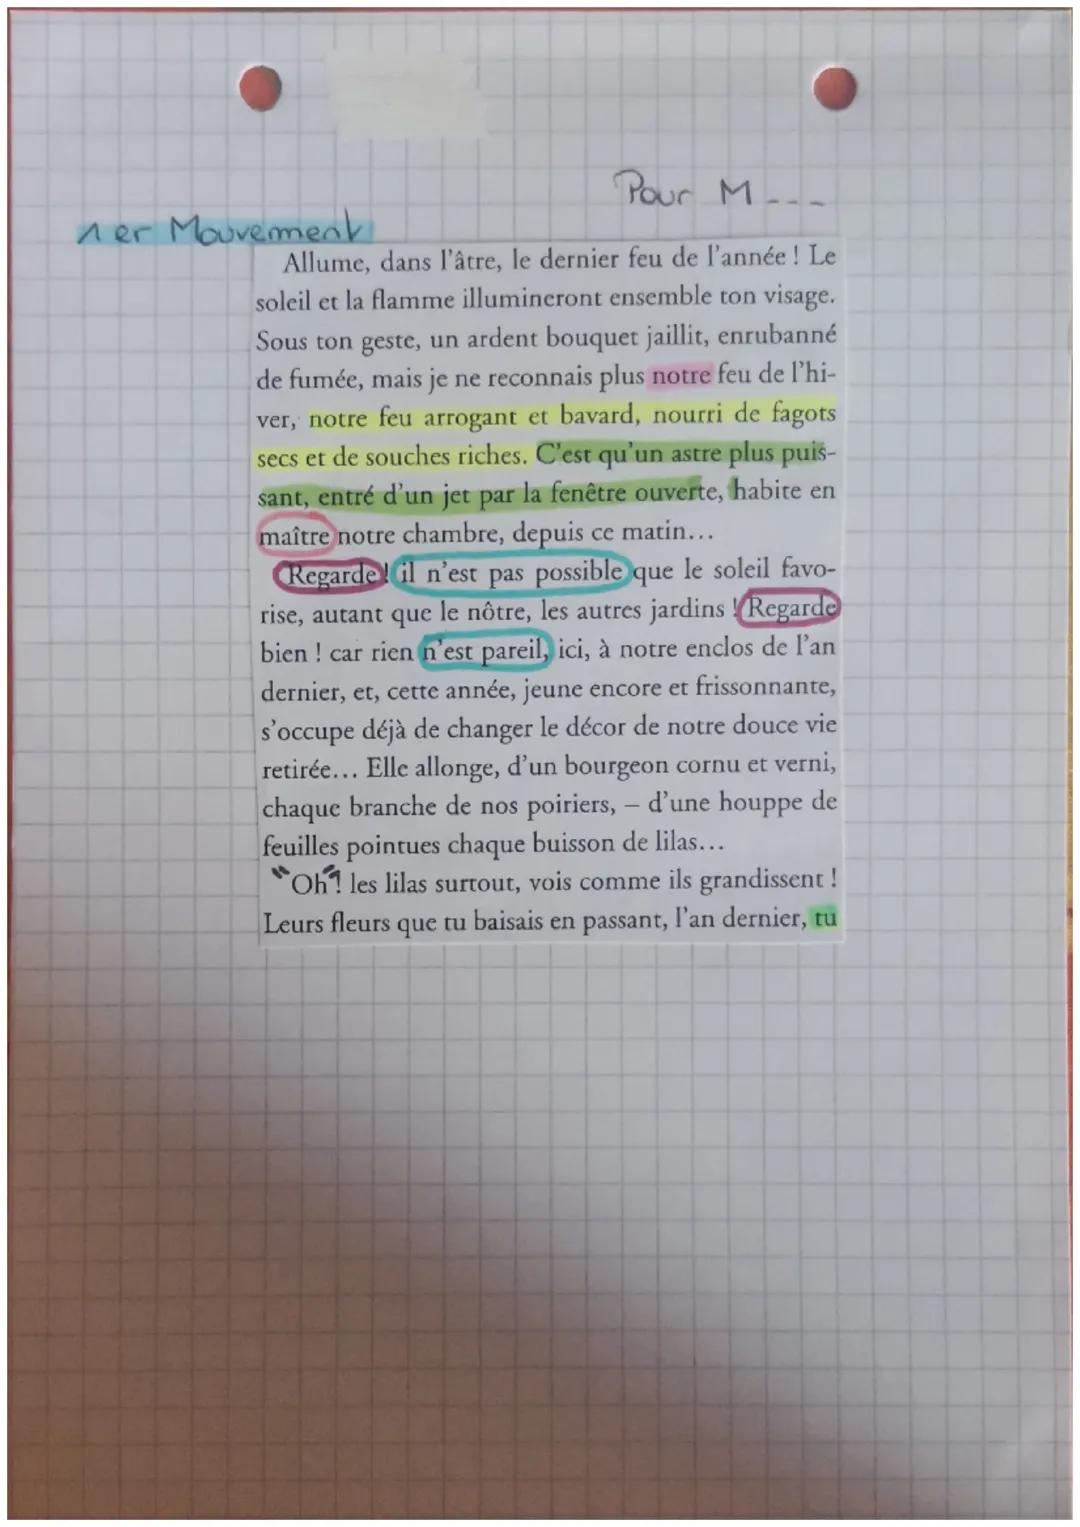 Pour M---
1er Mouvement
Allume, dans l'âtre, le dernier feu de l'année ! Le
soleil et la flamme illumineront ensemble ton visage.
Sous ton geste, un ardent bouquet jaillit, enrubanné
de fumée, mais je ne reconnais plus notre feu de l'hi-
ver, notre feu arrogant et bavard, nourri de fagots
secs et de souches riches. C'est qu'un astre plus puis-
sant, entré d'un jet par la fenêtre ouverte, habite en
maître notre chambre, depuis ce matin...
Regarde ! il n'est pas possible que le soleil favo-
rise, autant que le nôtre, les autres jardins ! Regarde
bien ! car rien n'est pareil, ici, à notre enclos de l'an
dernier, et, cette année, jeune encore et frissonnante,
s'occupe déjà de changer le décor de notre douce vie
retirée... Elle allonge, d'un bourgeon cornu et verni,
chaque branche de nos poiriers, – d'une houppe de
feuilles pointues chaque buisson de lilas...
"Oh"! les lilas surtout, vois comme ils grandissent !
Leurs fleurs que tu baisais en passant, l'an dernier, tu